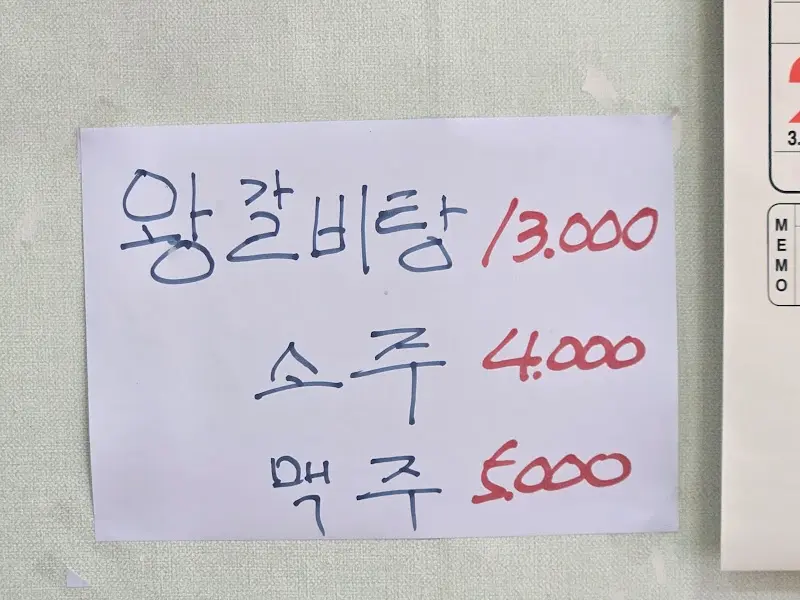 왕갈비탕 13.000
소주 4.000
맥주 5.000
3.
MEMO